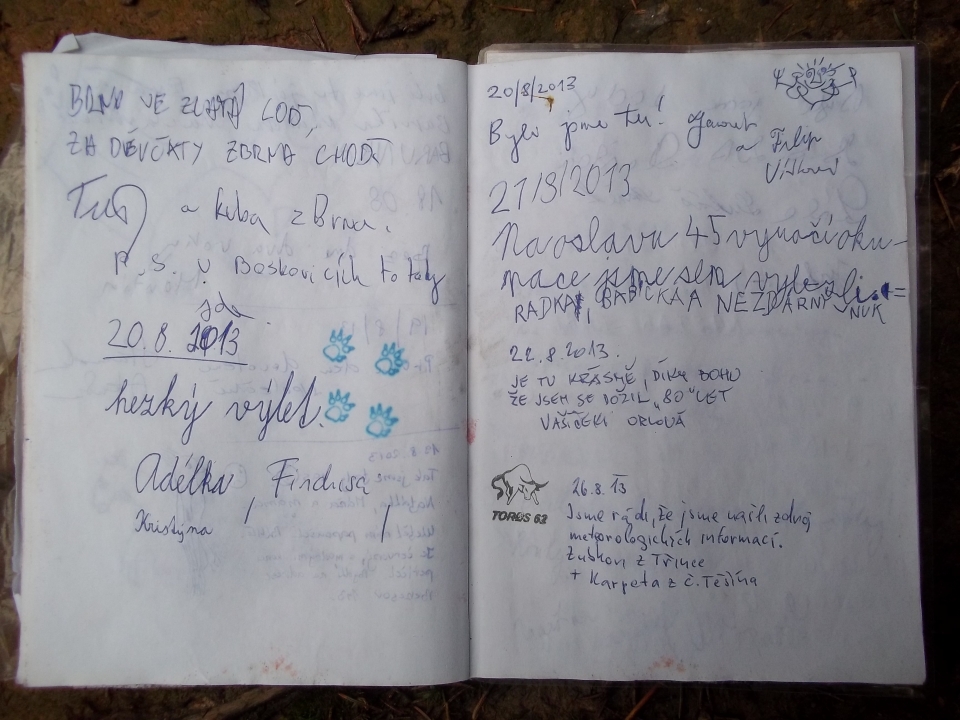 BRNO JE ZLATÁ LOĎ,
ZA DĚVČATY ZBRNA CHOĎ
a Kuba z Brna.
P.S. v Boskovicích to taky
jde
20.8. 2013
hezký výlet.
Adélka, Findusa
Kristýna
20/8/2013
Byli jsme tu!
a Filip
21/8/2013
Na oslavu 45 výročí oku-
pace jsme sem vylezli.
RADKA, BABIČKA A NEZDÁRNÝ
NUK
22.8.2013.
JE TU KRÁSNĚ, DÍKY BOHU
ŽE JSEM SE DOŽIL „80" LET
ORLOVÁ
26.8.13
TOROS 62
Jsme rádi, že jsme našli zdroj
meteorologických informací.
z Třince
+ Karpeta z Č. Těšína